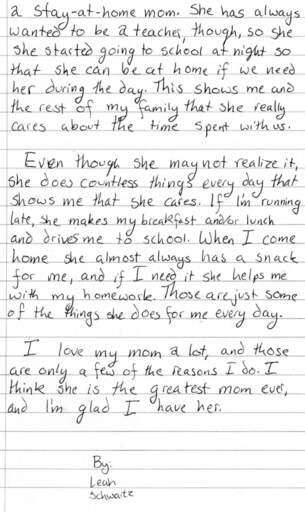 a stay-at-home mom. She has always
wanted to be a teacher, though, so she
she started going to school at night so
that she can be at home if we need
her during the day. This shows me and
the rest of my family that she really
cares about the time spent with us.
Even though she may not realize it,
she does countless things every day that
shows me that she cares. If I'm running
late, she makes my breakfast and/or lunch
and drives me to school. When I come
home she almost always has a snack
for me, and if I need it she helps me
with my homework. Those are just some
of the things she does for me every day.
I love my mom a lot, and those
are only a few of the reasons I do. I
think she is the greatest mom ever,
and I'm glad I have her.
By:
Leah
Schwartz